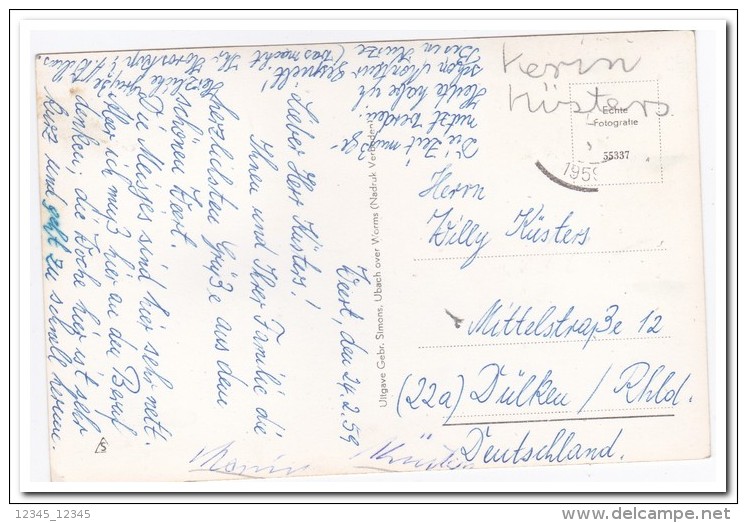 Weert, den 24.2.59
Lieber Herr Küsters!
Ihnen und Ihrer Familie die
herzlichsten Grüße aus dem
schönen Weert.
Die Meisjes sind hier sehr nett.
Aber ich muß hier an den Beruf
denken; die Woche hier ist sehr
kurz und geht zu schnell herum.
Die Zeit muß ge-
nutzt werden.
Heute habe ich
schon
Herzliche Grüße
Kerin
Küsters
Echte
Fotografie
55337
1959
Herrn
Willy Küsters
Mittelstraße 12
(22a) Dülken / Rhld.
Deutschland.
Uitgave Gebr. Simons, Ubach over Worms (Nadruk Verboden)
Küsters
12345_12345
delcampe.net